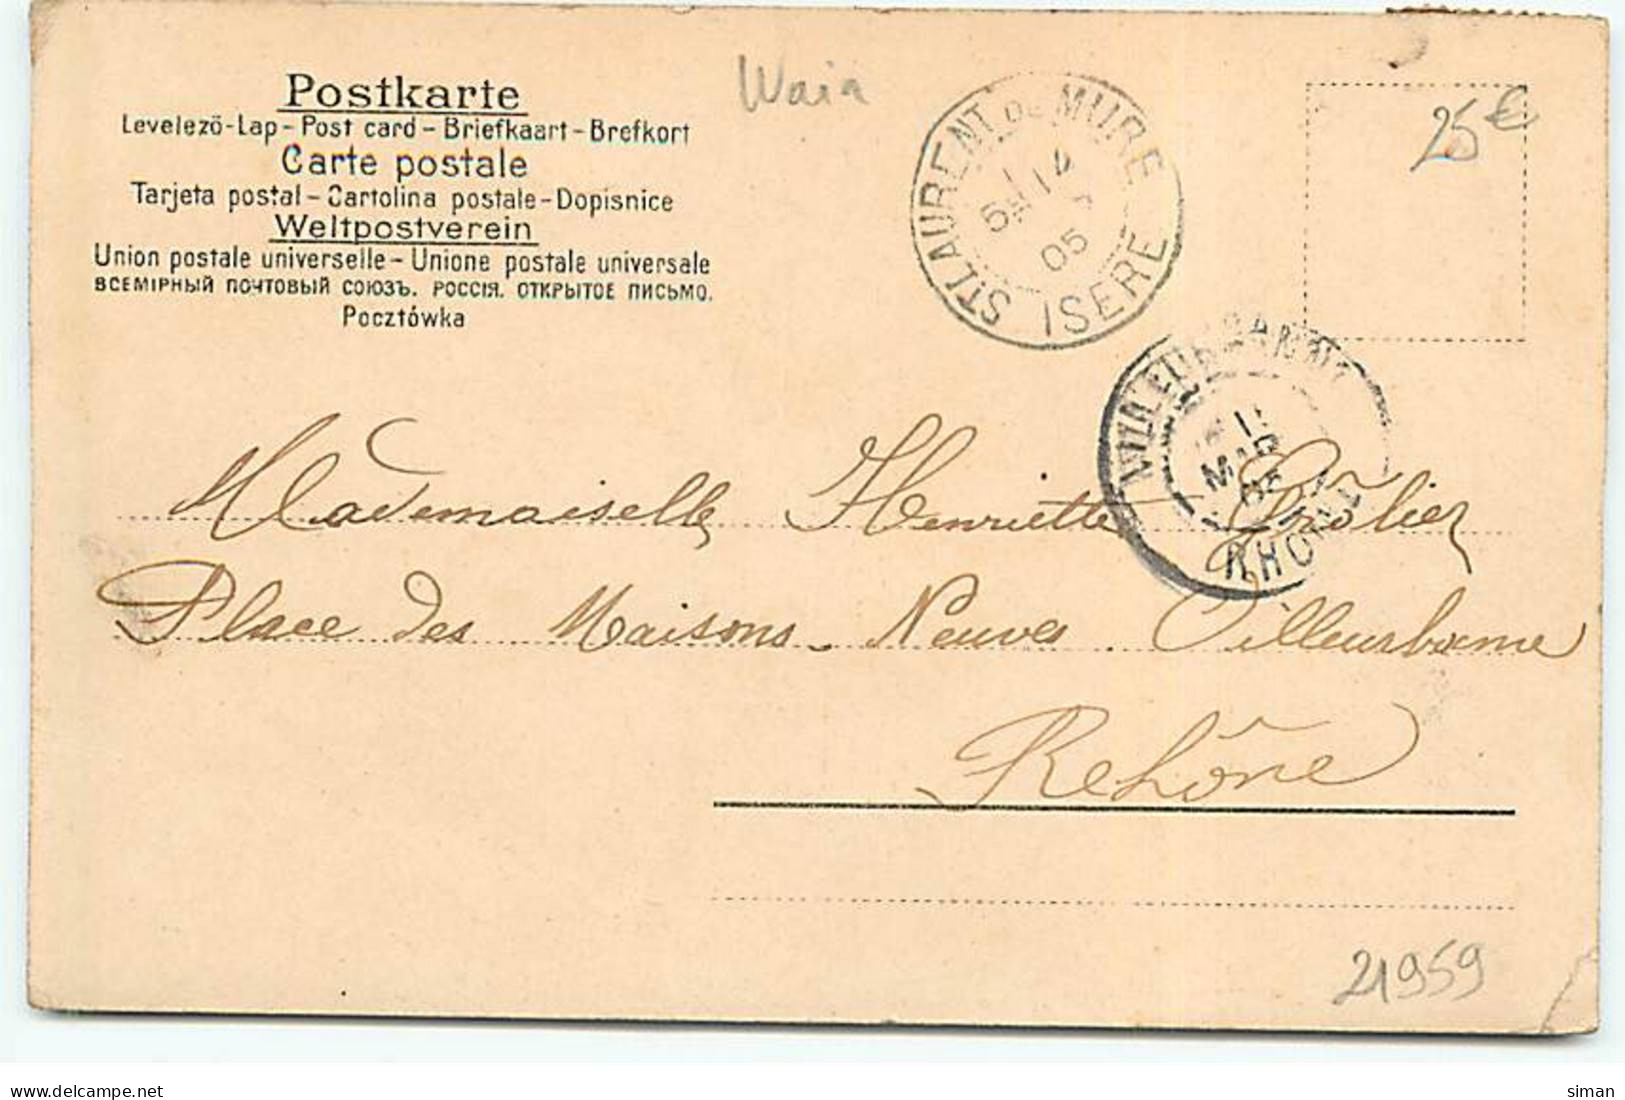 Postkarte
Levelező-Lap – Post card – Briefkaart – Brefkort
Carte postale
Tarjeta postal – Cartolina postale – Dopisnice
Weltpostverein
Union postale universelle – Unione postale universale
ВСЕМІРНЫЙ ПОЧТОВЫЙ СОЮЗЪ. РОССІЯ. ОТКРЫТОЕ ПИСЬМО.
Pocztówka
ST LAURENT DE MURE
05
ISERE
25€
VILLEURBANNE
MAR
05
RHONE
Mademoiselle Henriette Grôlier
Place des Maisons-Neuves Villeurbanne
Rehône
21959
siman